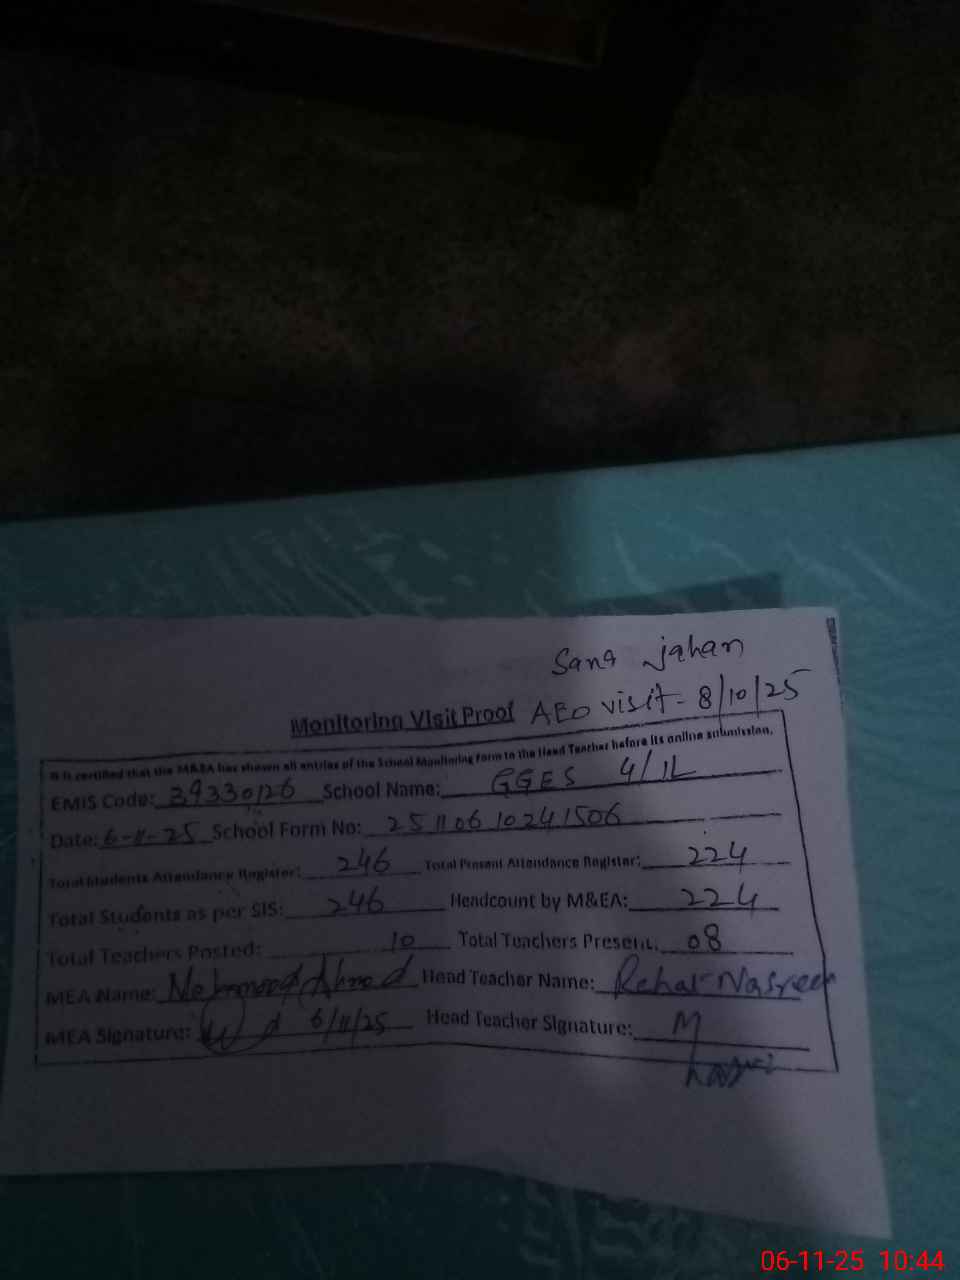 Sana jahan
Monitoring Visit Proof AEO visit - 8/10/25
It is certified that the M&EA has shown all entries of the School Monitoring Form to the Head Teacher before its online submission.
EMIS Code: 39330126 School Name: GGES 4/1L
Date: 6-11-25 School Form No: 25110610241506
Total Students Attendance Register: 246 Total Present Attendance Register: 224
Total Students as per SIS: 246 Headcount by M&EA: 224
Total Teachers Posted: 10 Total Teachers Present: 08
MEA Name: Mehmood Ahmad Head Teacher Name: Nasreen
MEA Signature: 6/11/25 Head Teacher Signature: M
06-11-25 10:44